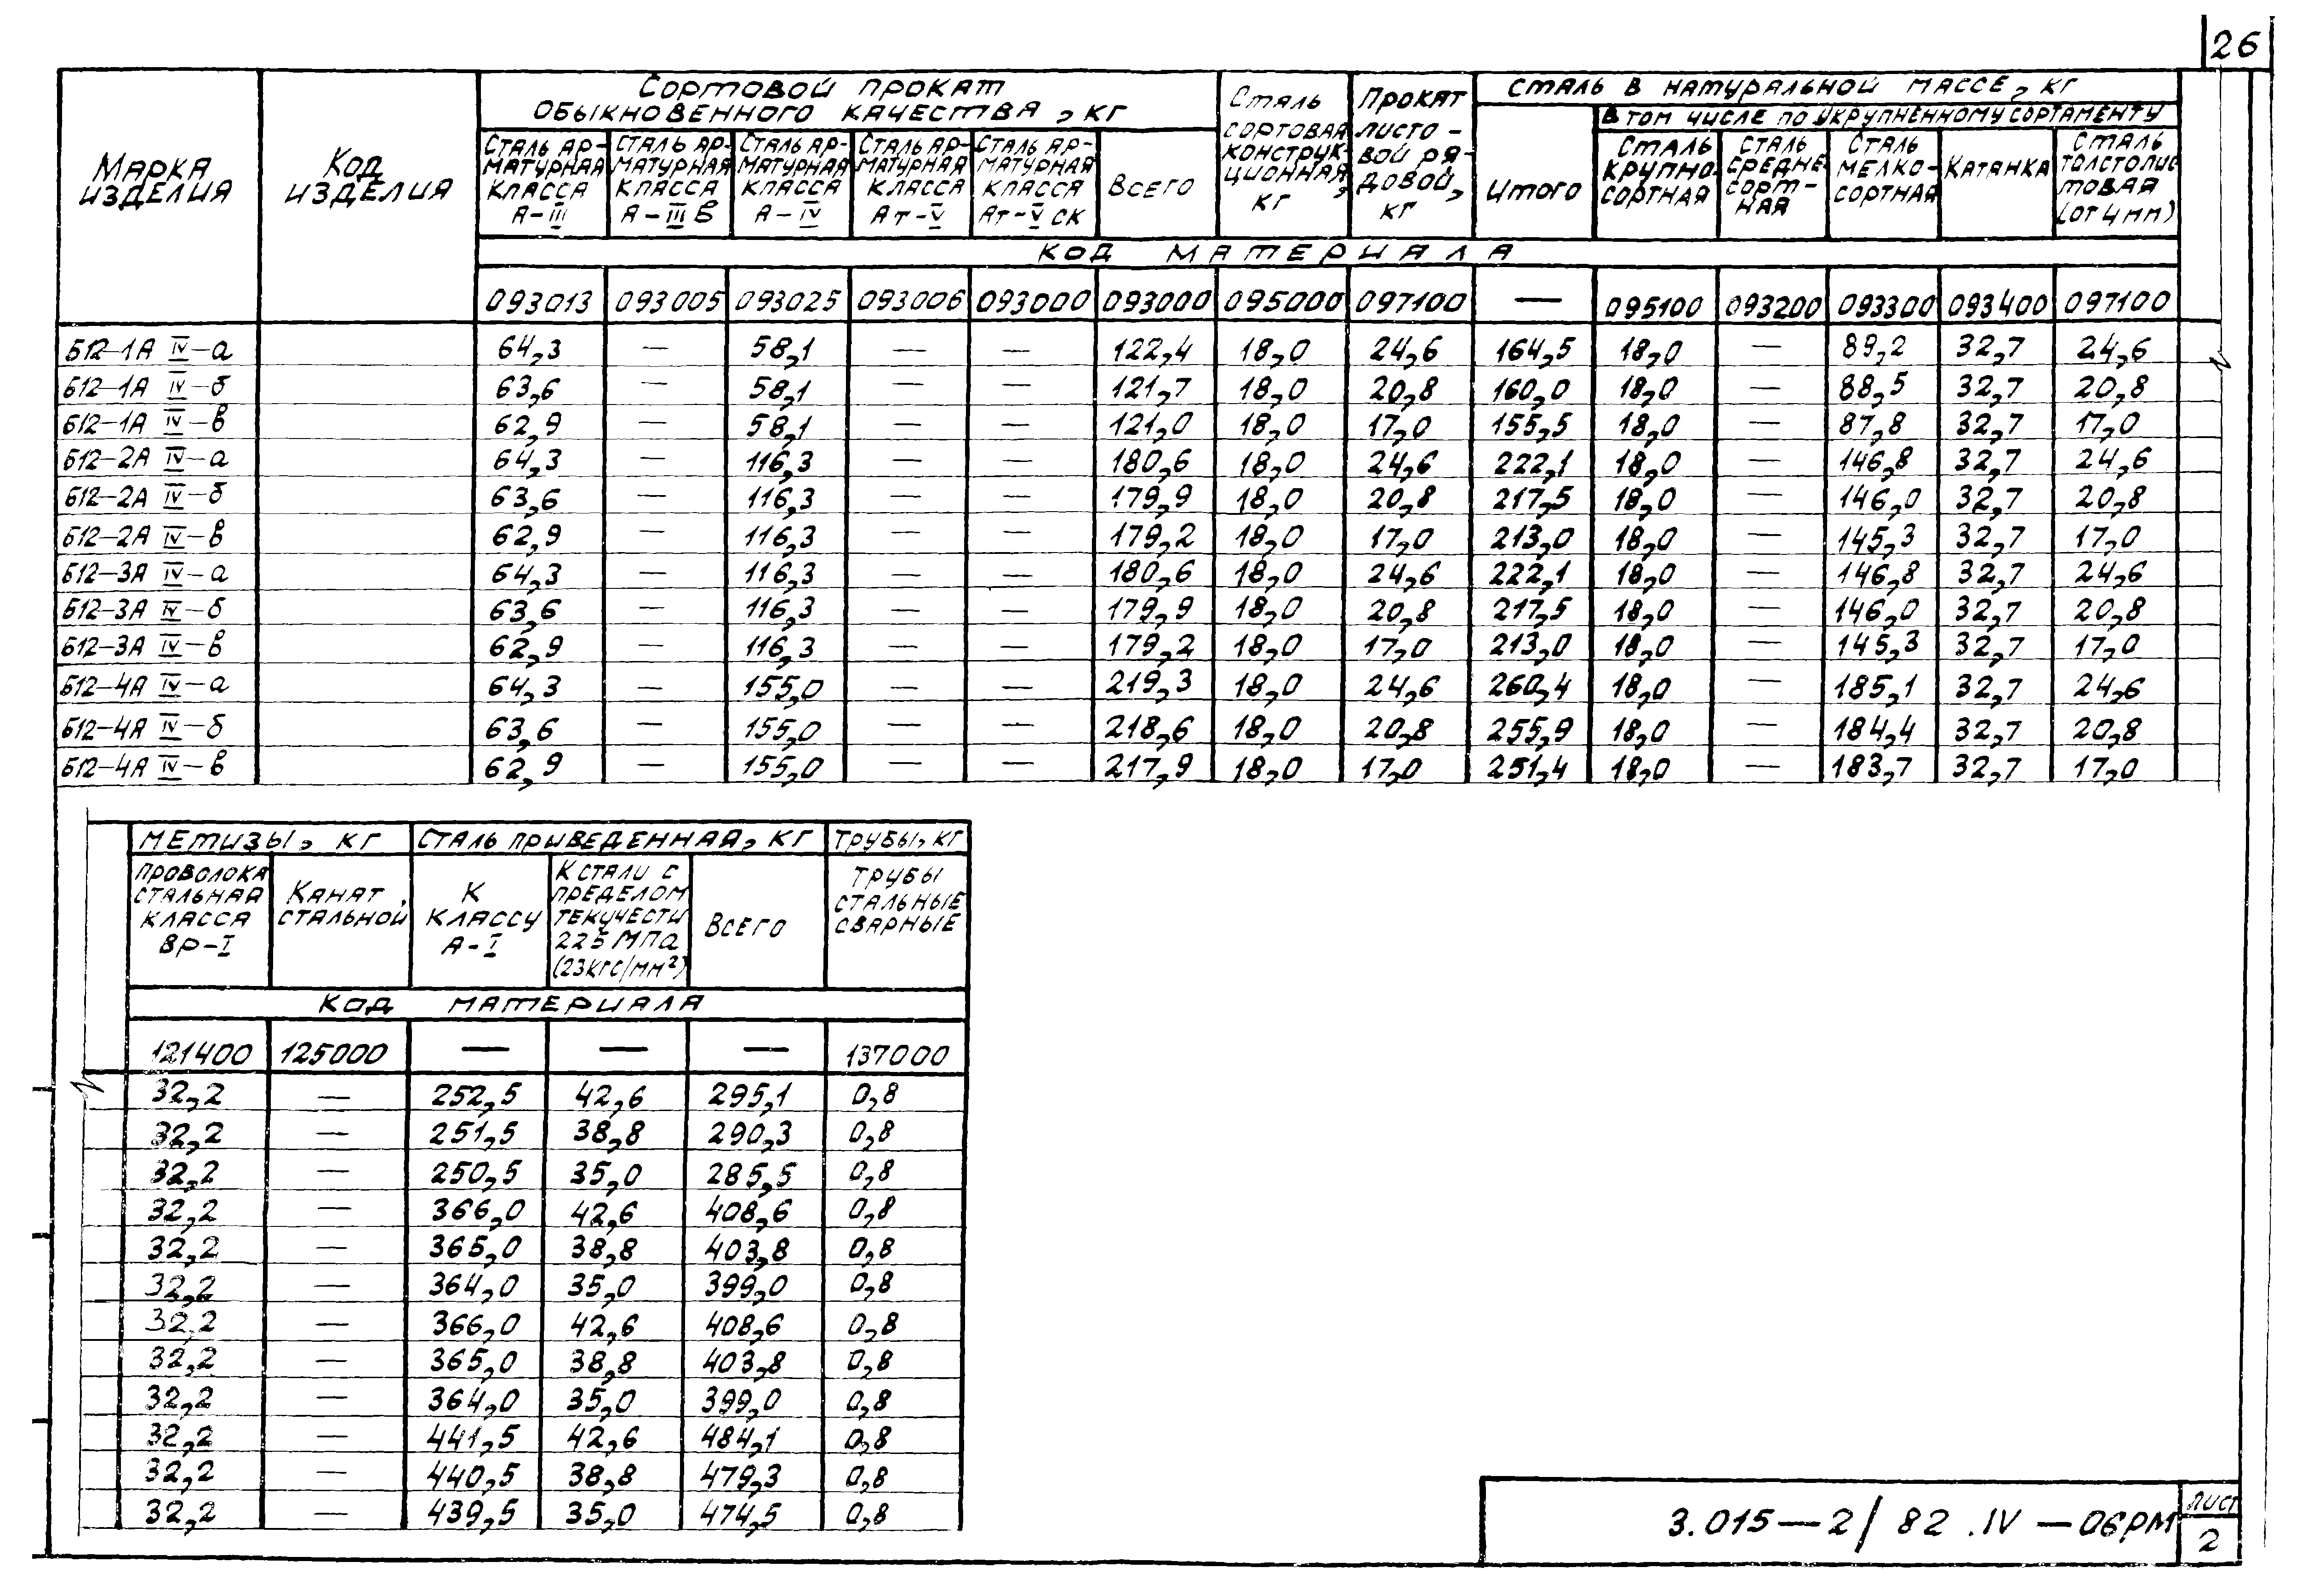 26
Марка изделия | Код изделия | Сортовой прокат обыкновенного качества, кг | Сталь сортовая конструкционная, кг | Прокат листовой рядовой, кг | Сталь в натуральной массе, кг
В том числе по укрупненному сортаменту
Сталь арматурная класса А-III | Сталь арматурная класса А-IIIВ | Сталь арматурная класса А-IV | Сталь арматурная класса Ат-V | Сталь арматурная класса Ат-V СК | Всего | Итого | Сталь крупносортная | Сталь среднесортная | Сталь мелкосортная | Катанка | Сталь толстолистовая (от 4 мм)
Код материала
093013 | 093005 | 093025 | 093006 | 093000 | 093000 | 095000 | 097100 | — | 095100 | 093200 | 093300 | 093400 | 097100
Б12-1А IV-а | 64,3 | — | 58,1 | — | — | 122,4 | 18,0 | 24,6 | 164,5 | 18,0 | — | 89,2 | 32,7 | 24,6
Б12-1А IV-б | 63,6 | — | 58,1 | — | — | 121,7 | 18,0 | 20,8 | 160,0 | 18,0 | — | 88,5 | 32,7 | 20,8
Б12-1А IV-в | 62,9 | — | 58,1 | — | — | 121,0 | 18,0 | 17,0 | 155,5 | 18,0 | — | 87,8 | 32,7 | 17,0
Б12-2А IV-а | 64,3 | — | 116,3 | — | — | 180,6 | 18,0 | 24,6 | 222,1 | 18,0 | — | 146,8 | 32,7 | 24,6
Б12-2А IV-б | 63,6 | — | 116,3 | — | — | 179,9 | 18,0 | 20,8 | 217,5 | 18,0 | — | 146,0 | 32,7 | 20,8
Б12-2А IV-в | 62,9 | — | 116,3 | — | — | 179,2 | 18,0 | 17,0 | 213,0 | 18,0 | — | 145,3 | 32,7 | 17,0
Б12-3А IV-а | 64,3 | — | 116,3 | — | — | 180,6 | 18,0 | 24,6 | 222,1 | 18,0 | — | 146,8 | 32,7 | 24,6
Б12-3А IV-б | 63,6 | — | 116,3 | — | — | 179,9 | 18,0 | 20,8 | 217,5 | 18,0 | — | 146,0 | 32,7 | 20,8
Б12-3А IV-в | 62,9 | — | 116,3 | — | — | 179,2 | 18,0 | 17,0 | 213,0 | 18,0 | — | 145,3 | 32,7 | 17,0
Б12-4А IV-а | 64,3 | — | 155,0 | — | — | 219,3 | 18,0 | 24,6 | 260,4 | 18,0 | — | 185,1 | 32,7 | 24,6
Б12-4А IV-б | 63,6 | — | 155,0 | — | — | 218,6 | 18,0 | 20,8 | 255,9 | 18,0 | — | 184,4 | 32,7 | 20,8
Б12-4А IV-в | 62,9 | — | 155,0 | — | — | 217,9 | 18,0 | 17,0 | 251,4 | 18,0 | — | 183,7 | 32,7 | 17,0
Метизы, кг | Сталь приведенная, кг | Трубы, кг
Проволока стальная класса Вр-I | Канат стальной | К классу А-I | К стали с пределом текучести 225 МПа (23кгс/мм²) | Всего | Трубы стальные сварные
Код материала
121400 | 125000 | — | — | — | 137000
32,2 | — | 252,5 | 42,6 | 295,1 | 0,8
32,2 | — | 251,5 | 38,8 | 290,3 | 0,8
32,2 | — | 250,5 | 35,0 | 285,5 | 0,8
32,2 | — | 366,0 | 42,6 | 408,6 | 0,8
32,2 | — | 365,0 | 38,8 | 403,8 | 0,8
32,2 | — | 364,0 | 35,0 | 399,0 | 0,8
32,2 | — | 366,0 | 42,6 | 408,6 | 0,8
32,2 | — | 365,0 | 38,8 | 403,8 | 0,8
32,2 | — | 364,0 | 35,0 | 399,0 | 0,8
32,2 | — | 441,5 | 42,6 | 484,1 | 0,8
32,2 | — | 440,5 | 38,8 | 479,3 | 0,8
32,2 | — | 439,5 | 35,0 | 474,5 | 0,8
3.015—2/82.IV—06РМ
Лист
2